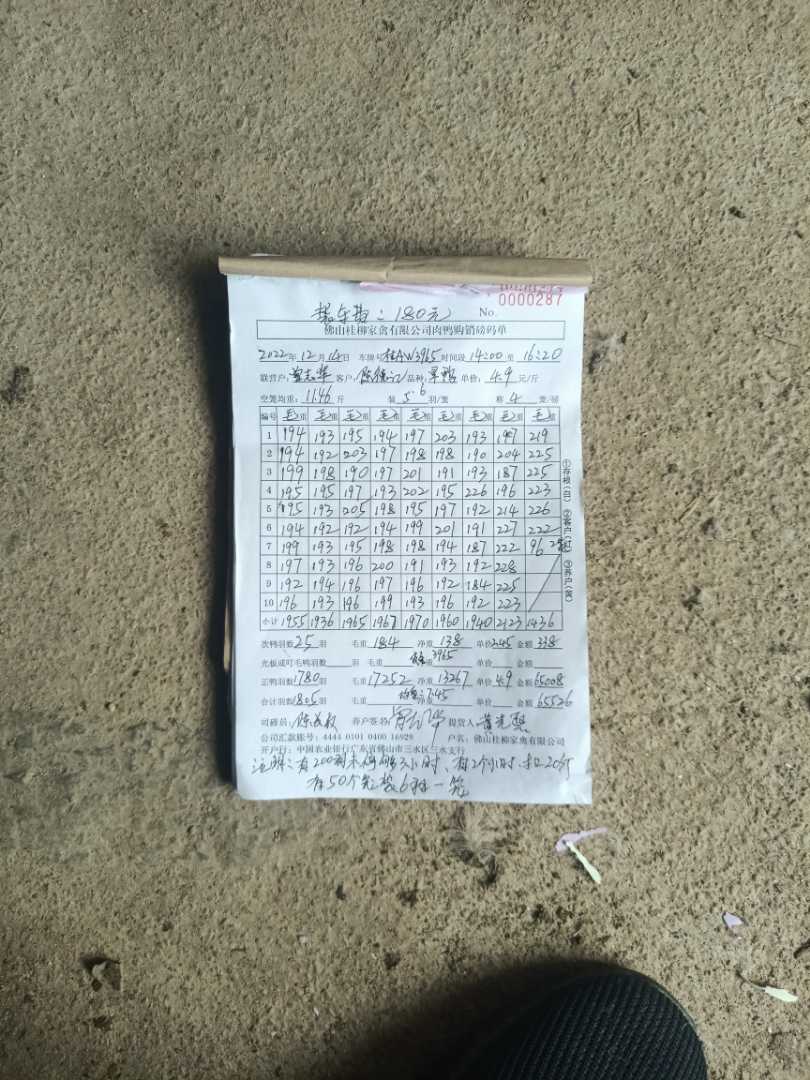 0000287
装车费：180元 No.
佛山桂柳家禽有限公司肉鸭购销磅码单
2022年12月14日 车牌号桂AW3965时间段14:00至16:20
联营户： 客户： 品种： 单价：4.9元/斤
空笼均重：11.46斤 装5.6羽/笼 称4笼/磅
编号 毛重 毛重 毛重 毛重 毛重 毛重 毛重 毛重 毛重
1 194 193 195 194 197 203 193 197 219
2 194 192 203 197 198 198 190 204 225
3 199 198 190 197 201 191 193 187 225
4 195 195 197 193 202 195 226 196 223
5 195 193 205 198 195 197 192 214 226
6 194 192 192 194 199 201 191 227 222
7 199 193 195 198 198 194 187 222 96
8 197 193 196 200 191 193 192 228
9 192 194 196 197 196 192 184 225
10 196 193 196 199 193 196 192 223
小计 1955 1936 1965 1967 1970 1960 1940 2123 1436
①存根（白） ②客户（红） ③养户（黄）
次鸭羽数25羽 毛重184 净重138 单价2.45 金额338
光板或叮毛鸭羽数 羽 毛重 净重3965 单价 金额
正鸭羽数1780羽 毛重17252 净重13267 单价4.9 金额65008
合计羽数1805羽 均重：7.45 单价 金额65526
司磅员： 养户签名： 提货人：
公司汇款账号：4444 0101 0400 16929 户名：佛山桂柳家禽有限公司
开户行：中国农业银行广东省佛山市三水区三水支行
注明：有200 小时、有2个小时、扣20斤
有50个笼装6羽一笼